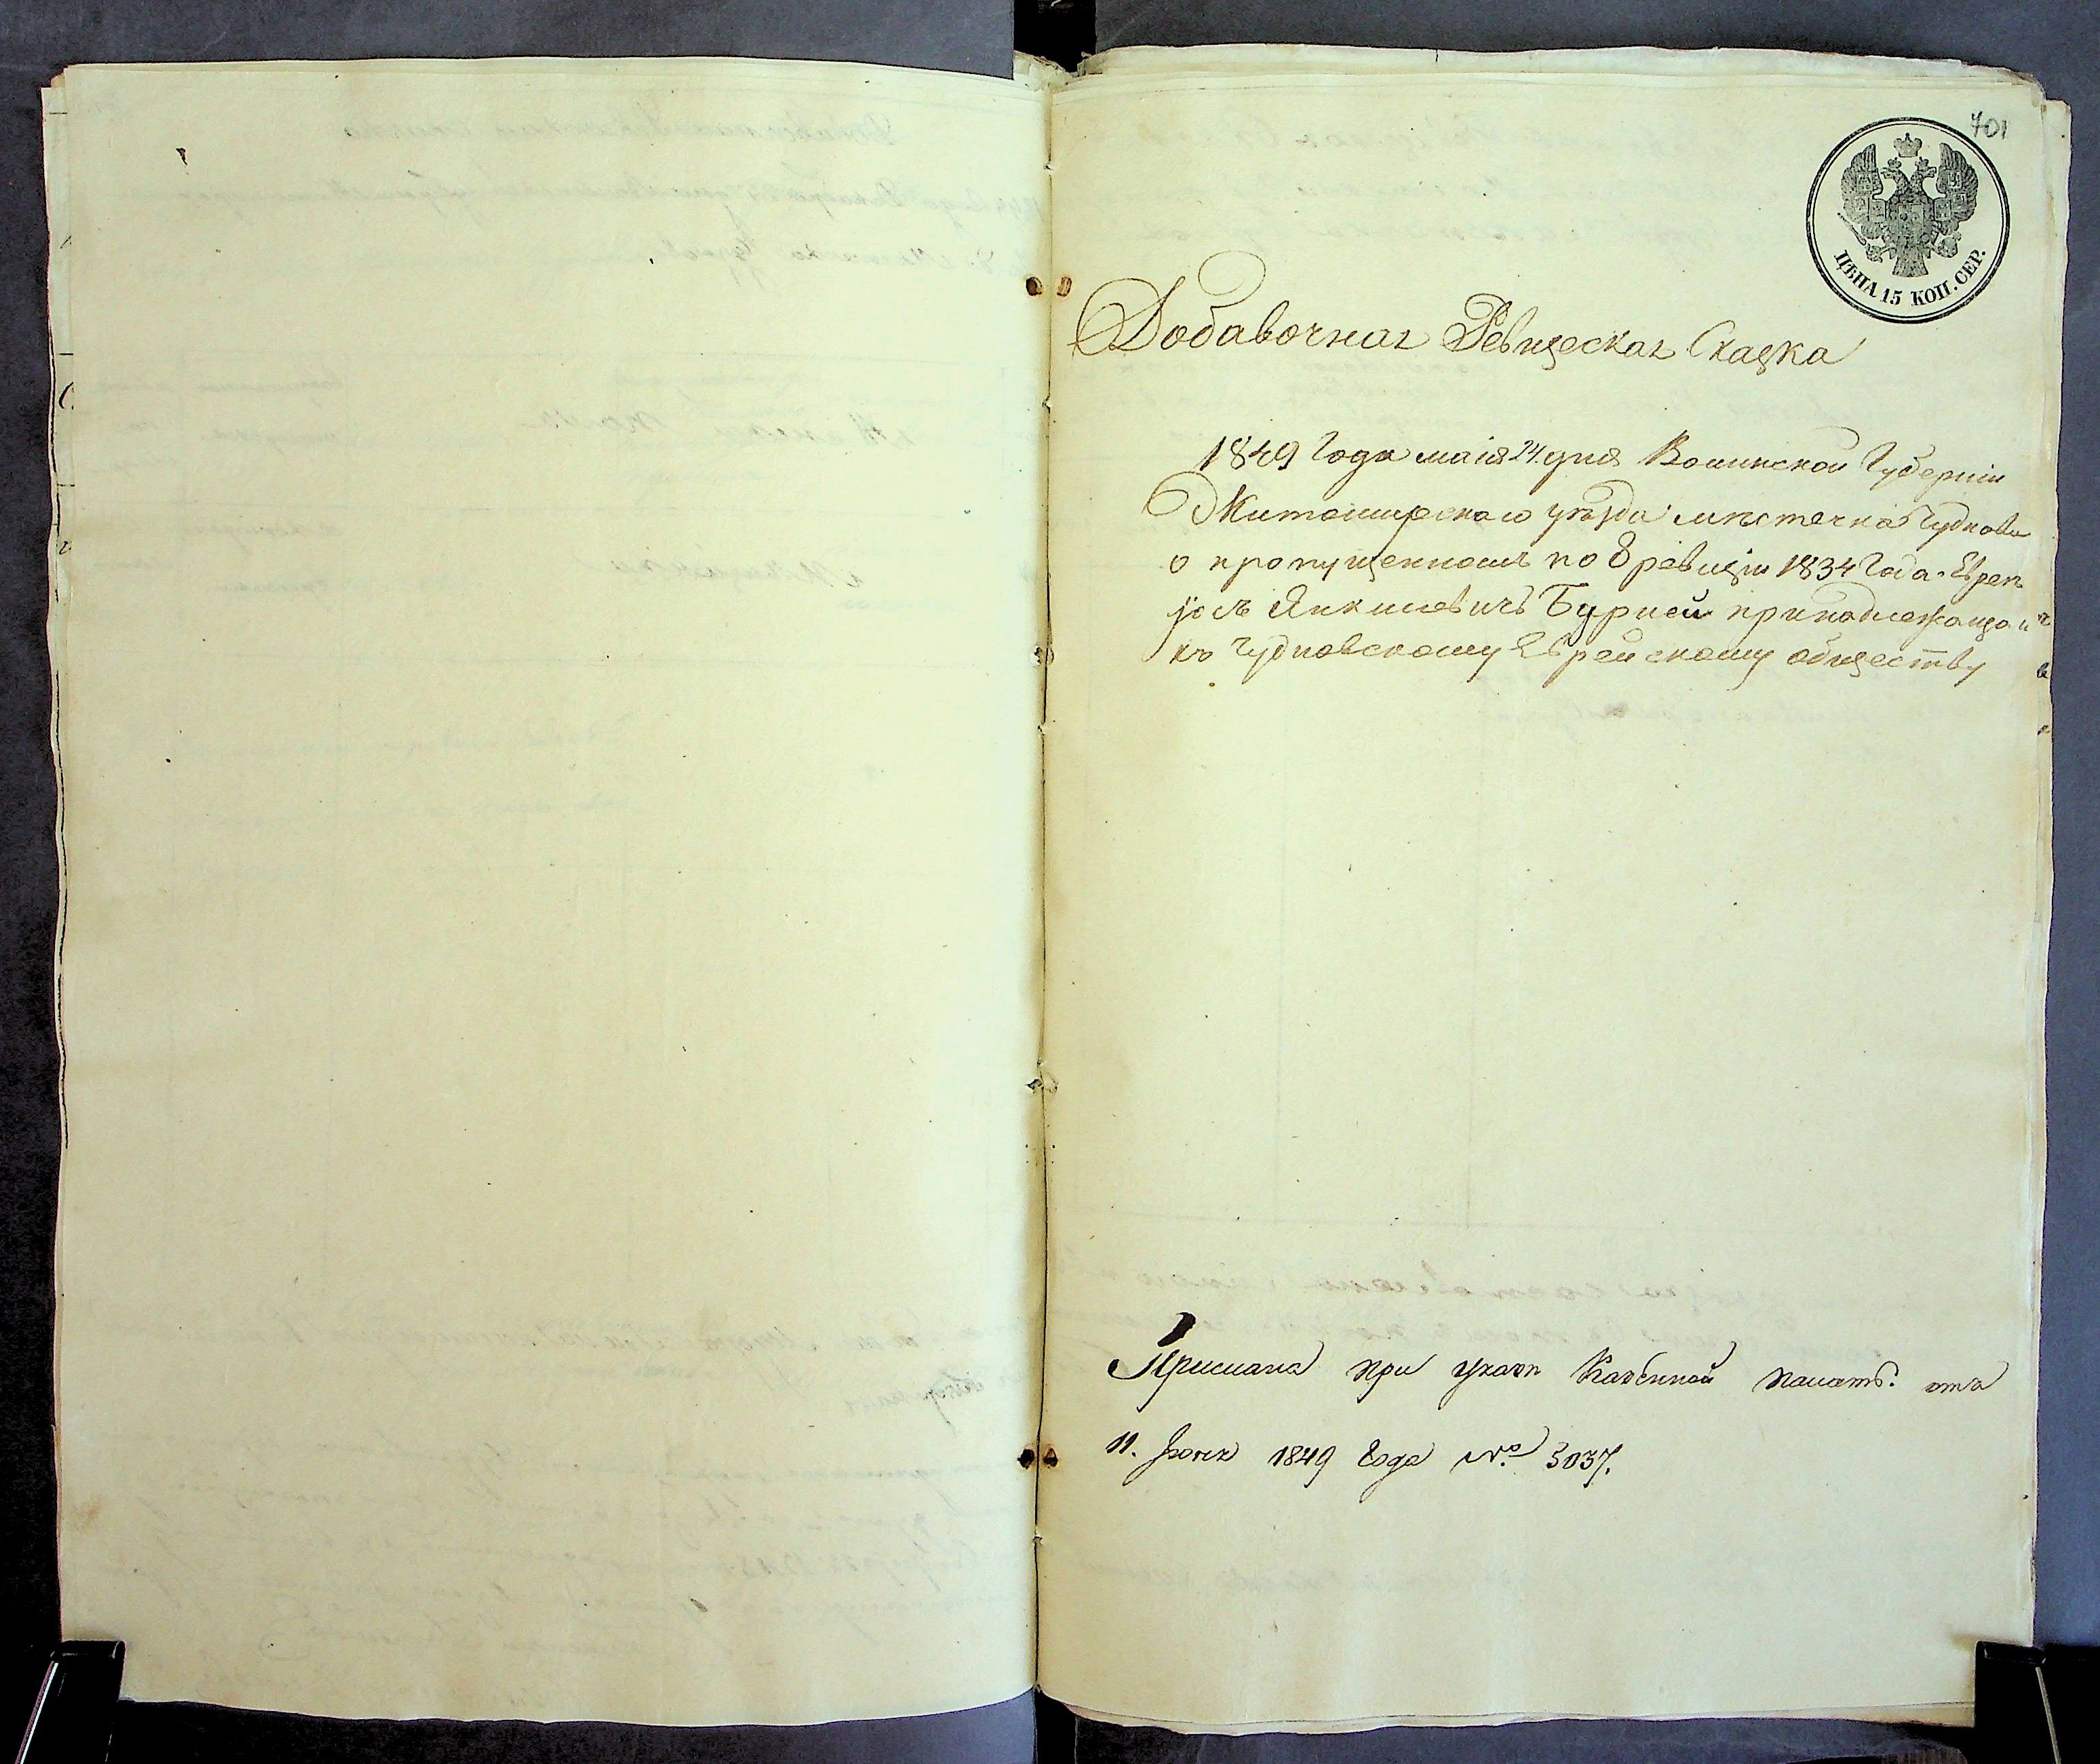 701
ЦѢНА 15 КОП. СЕР.
Добавочная Ревизская Сказка
1849 Года маія 24 дня Волинской Губерніи
Житомирскаго уѣзда мѣстечка Чуднова
о пропущенномъ по 8 ревизіи 1834 Года Евреѣ
Янкилевичъ принадлежащ
къ Чудновскому Еврейскому обществу
Прислана при указѣ Казенной палаты отъ
11. Іюня 1849 Года № 5037.